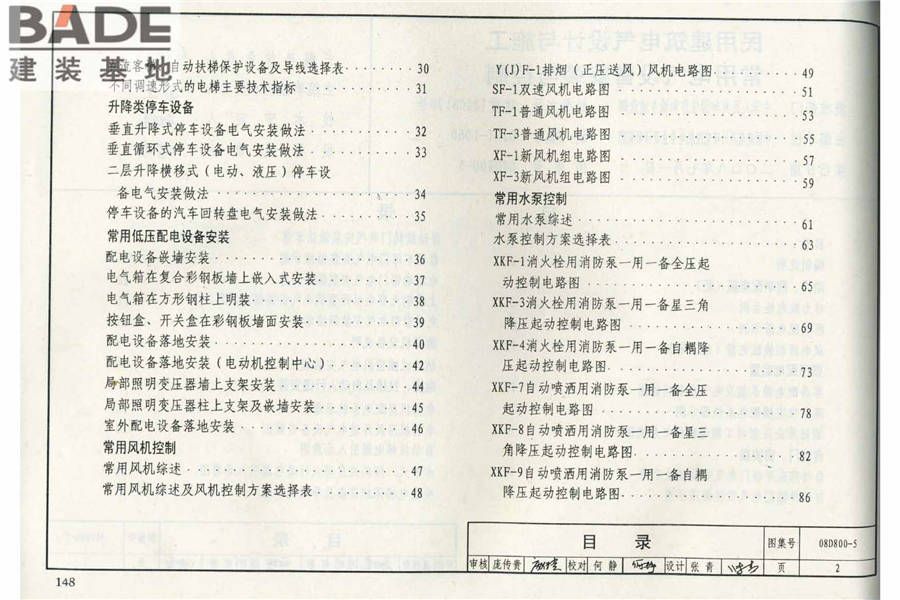 BADE
建装基地
自动扶梯保护设备及导线选择表 30
不同调速形式的电梯主要技术指标 31
升降类停车设备
垂直升降式停车设备电气安装做法 32
垂直循环式停车设备电气安装做法 33
二层升降横移式（电动、液压）停车设
备电气安装做法 34
停车设备的汽车回转盘电气安装做法 35
常用低压配电设备安装
配电设备嵌墙安装 36
电气箱在复合彩钢板墙上嵌入式安装 37
电气箱在方形钢柱上明装 38
按钮盒、开关盒在彩钢板墙面安装 39
配电设备落地安装 40
配电设备落地安装（电动机控制中心） 42
局部照明变压器墙上支架安装 44
局部照明变压器柱上支架及嵌墙安装 45
室外配电设备落地安装 46
常用风机控制
常用风机综述 47
常用风机综述及风机控制方案选择表 48
Y(J)F-1排烟（正压送风）风机电路图 49
SF-1双速风机电路图 51
TF-1普通风机电路图 53
TF-3普通风机电路图 55
XF-1新风机组电路图 57
XF-3新风机组电路图 59
常用水泵控制
常用水泵综述 61
水泵控制方案选择表 63
XKF-1消火栓用消防泵一用一备全压起
动控制电路图 65
XKF-3消火栓用消防泵一用一备星三角
降压起动控制电路图 69
XKF-4消火栓用消防泵一用一备自耦降
压起动控制电路图 73
XKF-7自动喷洒用消防泵一用一备全压
起动控制电路图 78
XKF-8自动喷洒用消防泵一用一备星三
角降压起动控制电路图 82
XKF-9自动喷洒用消防泵一用一备自耦
降压起动控制电路图 86
目 录 图集号 08D800-5
审核 庞传贵 校对 何静 设计 张青 页 2
148